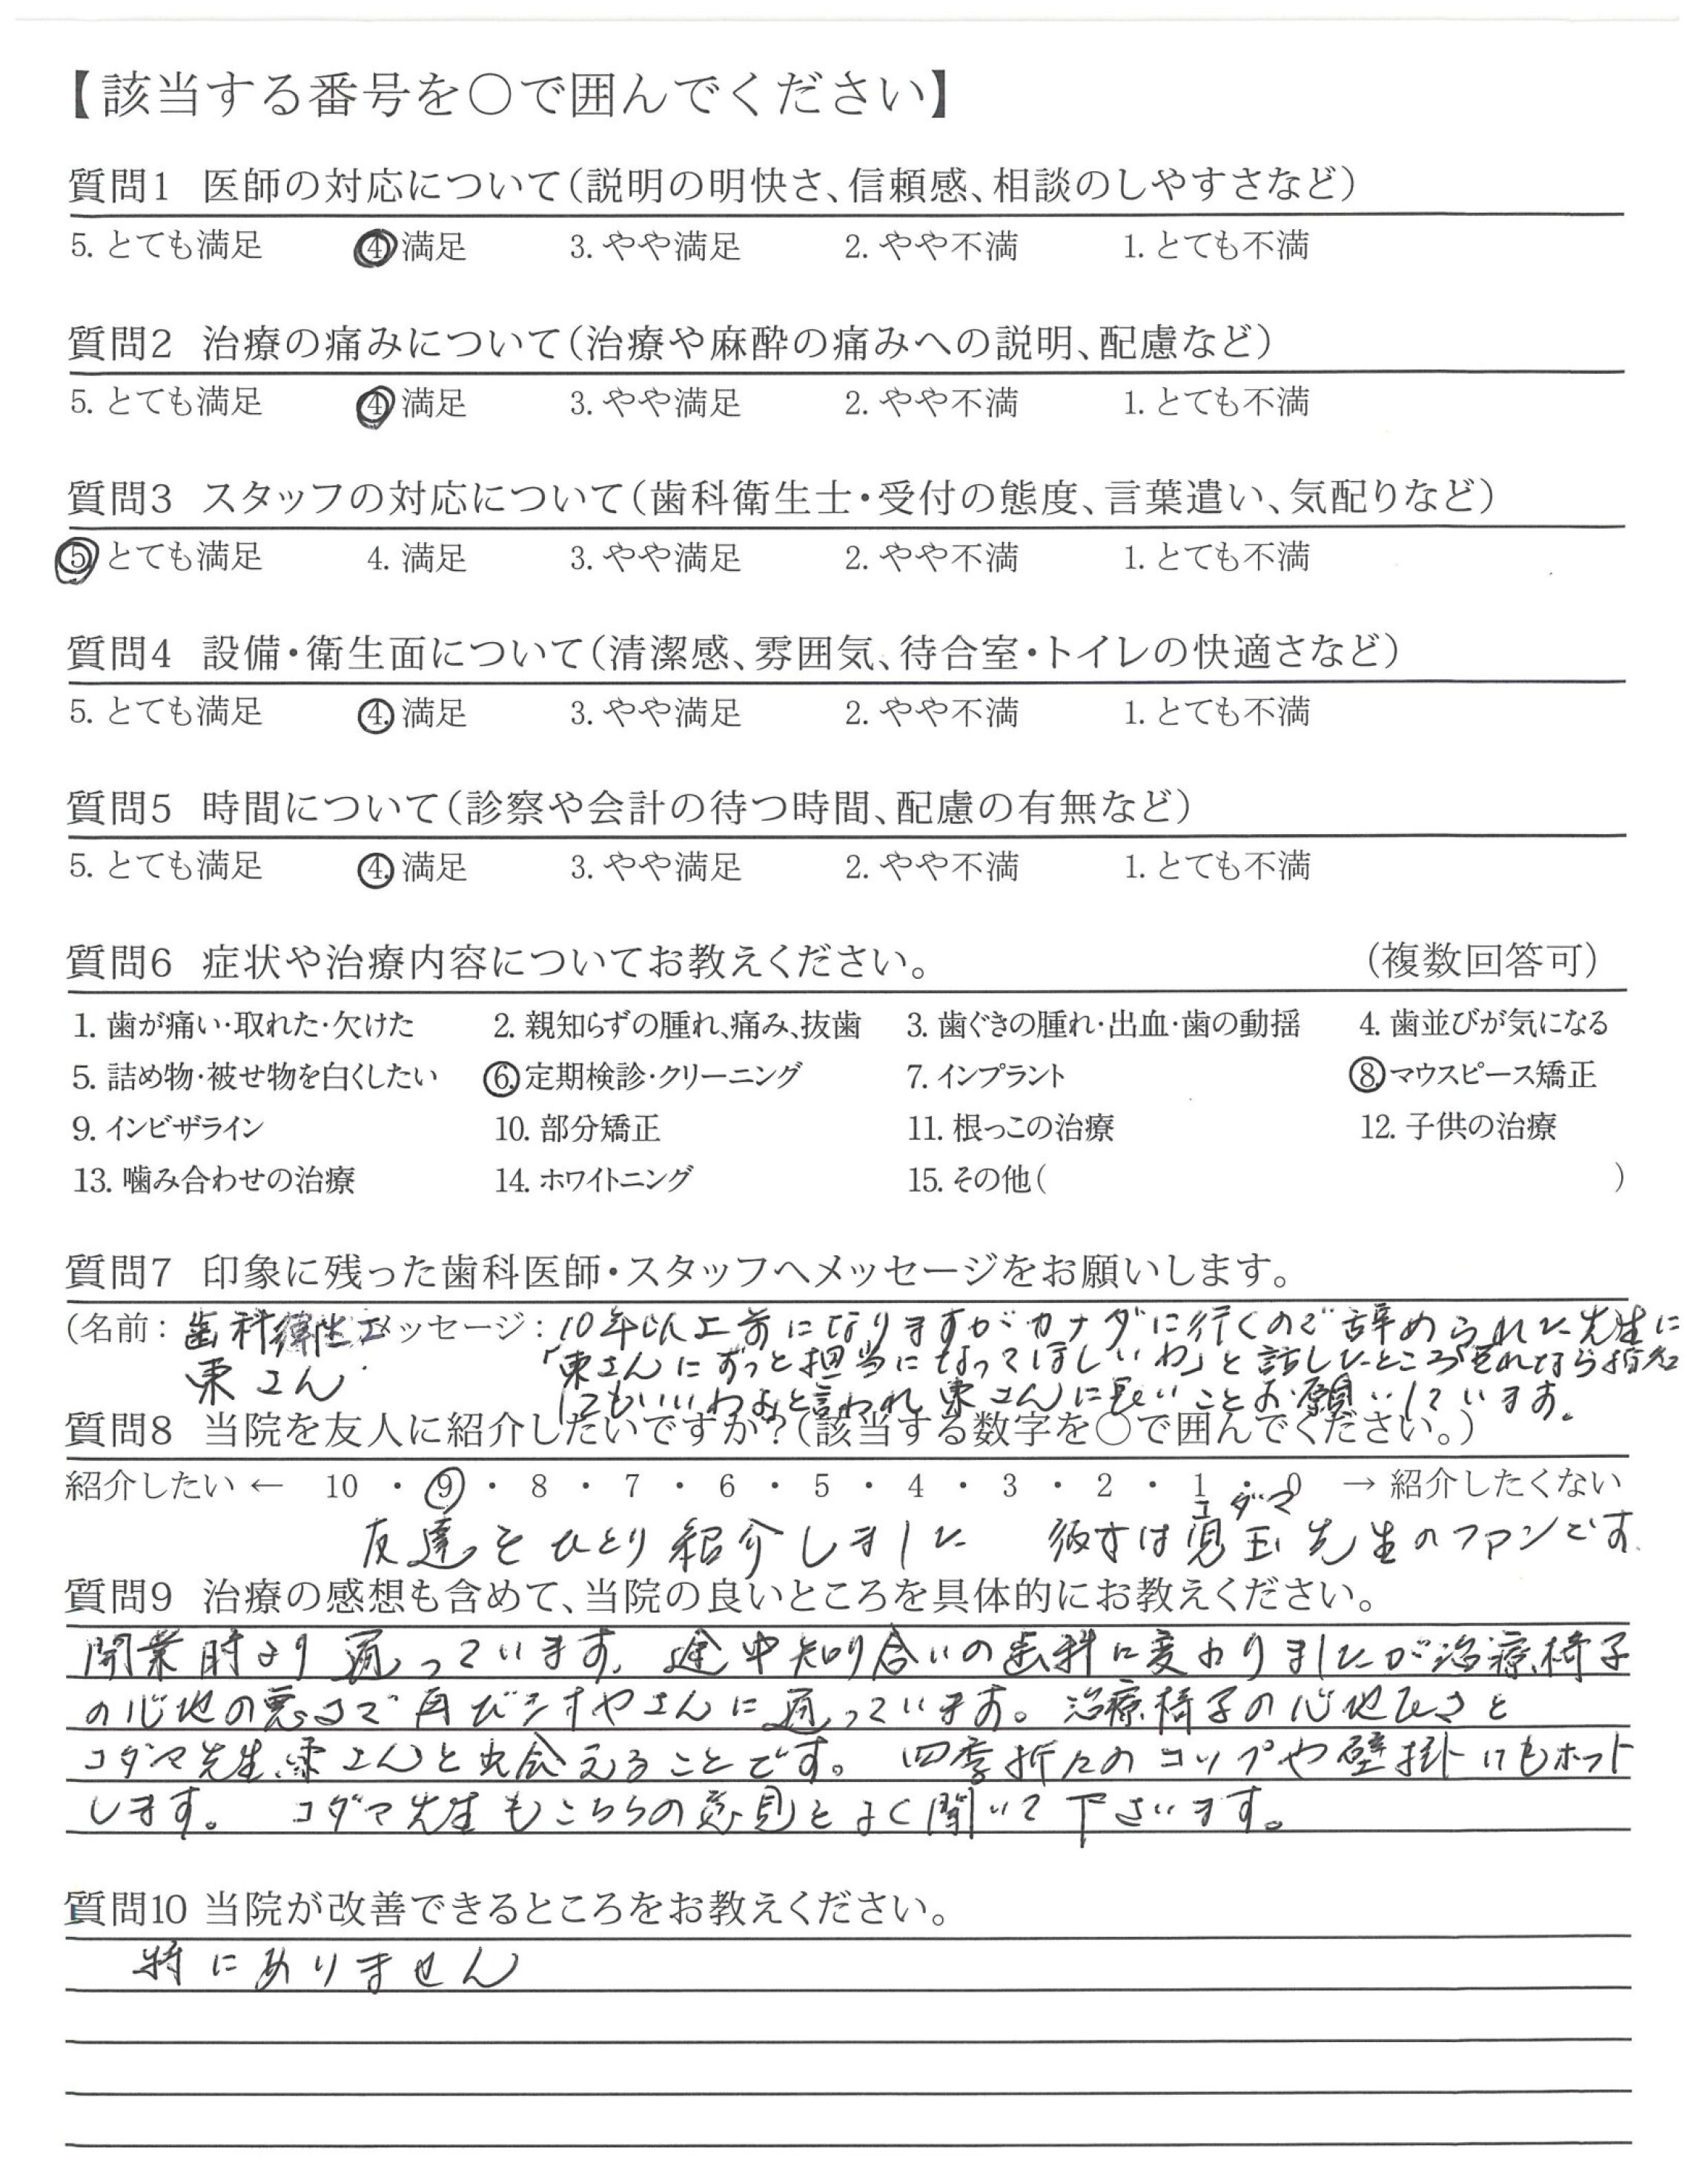 【該当する番号を○で囲んでください】
質問1 医師の対応について(説明の明快さ、信頼感、相談のしやすさなど)
5. とても満足 4. 満足 3. やや満足 2. やや不満 1. とても不満
質問2 治療の痛みについて(治療や麻酔の痛みへの説明、配慮など)
5. とても満足 4. 満足 3. やや満足 2. やや不満 1. とても不満
質問3 スタッフの対応について(歯科衛生士・受付の態度、言葉遣い、気配りなど)
5. とても満足 4. 満足 3. やや満足 2. やや不満 1. とても不満
質問4 設備・衛生面について(清潔感、雰囲気、待合室・トイレの快適さなど)
5. とても満足 4. 満足 3. やや満足 2. やや不満 1. とても不満
質問5 時間について(診察や会計の待つ時間、配慮の有無など)
5. とても満足 4. 満足 3. やや満足 2. やや不満 1. とても不満
質問6 症状や治療内容についてお教えください。 (複数回答可)
1. 歯が痛い・取れた・欠けた 2. 親知らずの腫れ、痛み、抜歯 3. 歯ぐきの腫れ・出血・歯の動揺 4. 歯並びが気になる
5. 詰め物・被せ物を白くしたい 6. 定期検診・クリーニング 7. インプラント 8. マウスピース矯正
9. インビザライン 10. 部分矯正 11. 根っこの治療 12. 子供の治療
13. 噛み合わせの治療 14. ホワイトニング 15. その他( )
質問7 印象に残った歯科医師・スタッフへメッセージをお願いします。
(名前: 歯科衛生士 メッセージ: 10年以上前になりますがカナダに行くので辞められた先生に
東さん 「東さんにずっと担当になってほしいわ」と話したところ「それなら指名
してもいいわよ」と言われ東さんに長いことお願いしています。
質問8 当院を友人に紹介したいですか?(該当する数字を○で囲んでください。)
紹介したい ← 10 ・ 9 ・ 8 ・ 7 ・ 6 ・ 5 ・ 4 ・ 3 ・ 2 ・ 1 ・ 0 → 紹介したくない
コダマ
友達をひとり紹介しました 彼女は児玉先生のファンです
質問9 治療の感想も含めて、当院の良いところを具体的にお教えください。
開業時より通っています。途中知り合いの歯科に変わりましたが治療椅子
の心地の悪さで再び やさんに通っています。治療椅子の心地良さと
コダマ先生、東さんと出会えることです。 四季折々のコップや壁掛けにもホット
します。 コダマ先生もこちらの意見をよく聞いて下さいます。
質問10 当院が改善できるところをお教えください。
特にありません